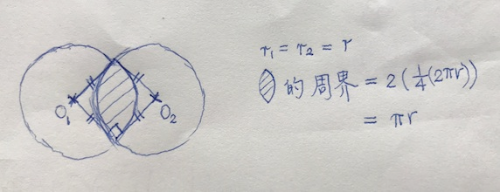 O₁
O₂
r₁ = r₂ = r
的周界 = 2(¼(2πr))
= πr